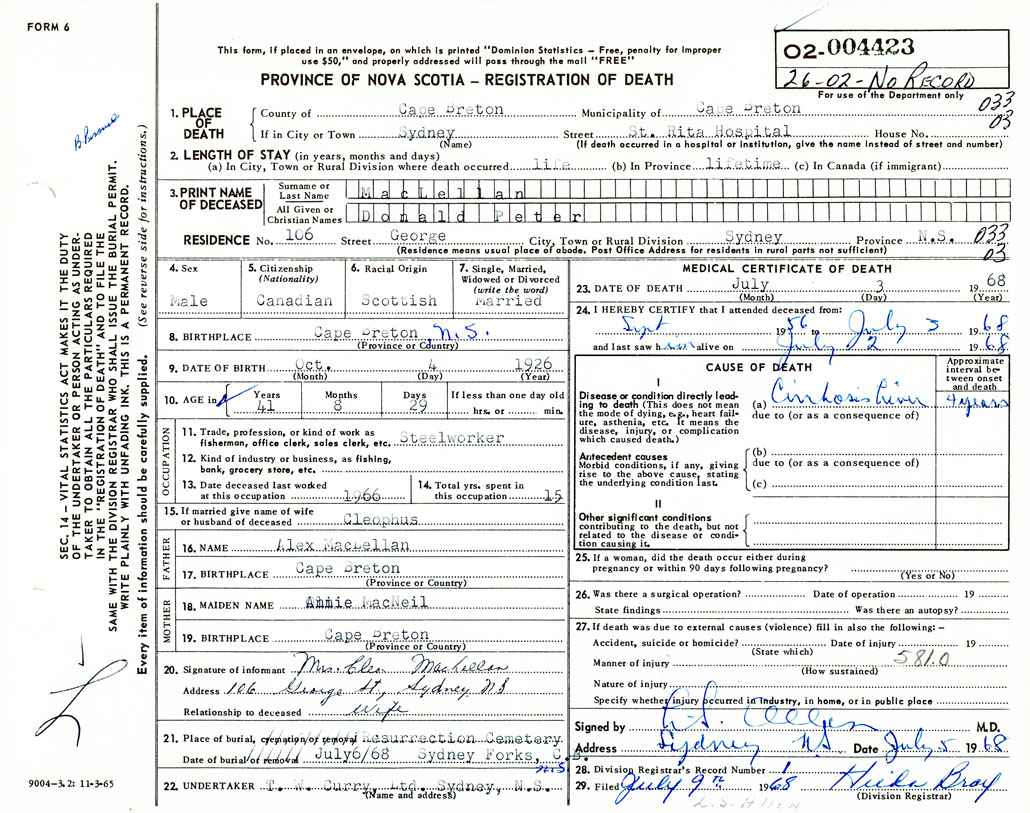 FORM 6
This form, if placed in an envelope, on which is printed "Dominion Statistics – Free, penalty for improper
use $50," and properly addressed will pass through the mail "FREE"
PROVINCE OF NOVA SCOTIA – REGISTRATION OF DEATH
02-004423
26-02-NO RECORD
For use of the Department only
033
03
1. PLACE OF DEATH
County of Cape Breton Municipality of Cape Breton
If in City or Town Sydney Street St. Rita Hospital House No.
(Name) (If death occurred in a hospital or institution, give the name instead of street and number)
2. LENGTH OF STAY (in years, months and days)
(a) In City, Town or Rural Division where death occurred life (b) In Province lifetime (c) In Canada (if immigrant)
3. PRINT NAME OF DECEASED
Surname or Last Name MacLellan
All Given or Christian Names Donald Peter
RESIDENCE No. 106 Street George City, Town or Rural Division Sydney Province N.S. 033
(Residence means usual place of abode. Post Office Address for residents in rural parts not sufficient) 03
4. Sex
Male
5. Citizenship
(Nationality)
Canadian
6. Racial Origin
Scottish
7. Single, Married,
Widowed or Divorced
(write the word)
Married
8. BIRTHPLACE Cape Breton, N.S.
(Province or Country)
9. DATE OF BIRTH Oct. 4 1926
(Month) (Day) (Year)
10. AGE in Years Months Days If less than one day old
41 8 29 hrs. or min.
OCCUPATION
11. Trade, profession, or kind of work as
fisherman, office clerk, sales clerk, etc. Steelworker
12. Kind of industry or business, as fishing,
bank, grocery store, etc.
13. Date deceased last worked
at this occupation 1966
14. Total yrs. spent in
this occupation 15
15. If married give name of wife
or husband of deceased Cleophus
FATHER
16. NAME Alex MacLellan
17. BIRTHPLACE Cape Breton
(Province or Country)
MOTHER
18. MAIDEN NAME Annie MacNeil
19. BIRTHPLACE Cape Breton
(Province or Country)
20. Signature of informant Mrs. Cleo MacLellan
Address 106 George St, Sydney NS
Relationship to deceased wife
21. Place of burial, cremation or removal Resurrection Cemetery
Date of burial or removal July 6/68 Sydney Forks, C.B.
N.S.
22. UNDERTAKER T. W. Curry, Ltd. Sydney, N.S.
(Name and address)
MEDICAL CERTIFICATE OF DEATH
23. DATE OF DEATH July 3 1968
(Month) (Day) (Year)
24. I HEREBY CERTIFY that I attended deceased from:
Sept 1956 to July 3 1968
and last saw him alive on July 2 1968
CAUSE OF DEATH
Approximate interval between onset and death
I
Disease or condition directly leading to death (This does not mean the mode of dying, e.g., heart failure, asthenia, etc. It means the disease, injury, or complication which caused death.)
(a) Cirrhosis liver 4 years
due to (or as a consequence of)
Antecedent causes
Morbid conditions, if any, giving rise to the above cause, stating the underlying condition last.
(b)
due to (or as a consequence of)
(c)
II
Other significant conditions
contributing to the death, but not related to the disease or condition causing it.
25. If a woman, did the death occur either during
pregnancy or within 90 days following pregnancy?
(Yes or No)
26. Was there a surgical operation? Date of operation 19
State findings Was there an autopsy?
27. If death was due to external causes (violence) fill in also the following: –
Accident, suicide or homicide? Date of injury 19
(State which)
Manner of injury 581.0
(How sustained)
Nature of injury
Specify whether injury occurred in industry, in home, or in public place
Signed by M.D.
Address Sydney NS Date July 5 1968
28. Division Registrar's Record Number 1
29. Filed July 9th 1968 Hilda Bray
(Division Registrar)
SEC. 14 – VITAL STATISTICS ACT MAKES IT THE DUTY
OF THE UNDERTAKER OR PERSON ACTING AS UNDER-
TAKER TO OBTAIN ALL THE PARTICULARS REQUIRED
IN THE "REGISTRATION OF DEATH" AND TO FILE THE
SAME WITH THE DIVISION REGISTRAR WHO SHALL ISSUE THE BURIAL PERMIT.
WRITE PLAINLY WITH UNFADING INK. THIS IS A PERMANENT RECORD.
Every item of information should be carefully supplied. (See reverse side for instructions.)
9004-3.2: 11-3-65